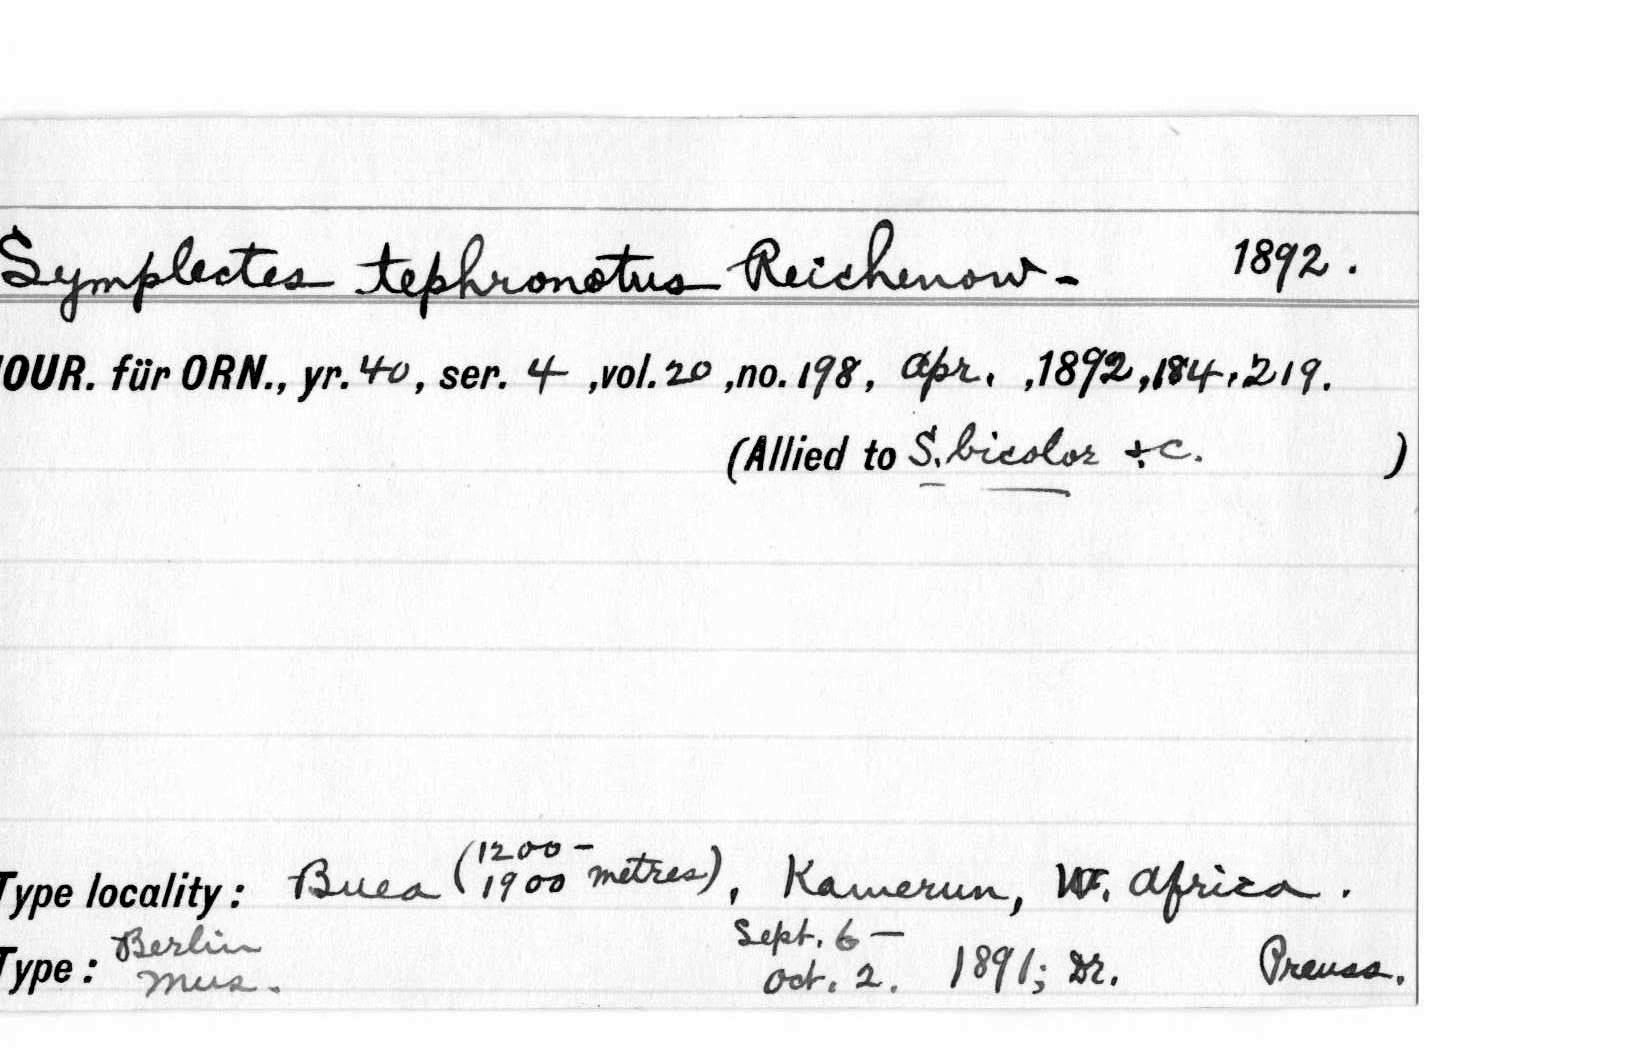 Symplectes tephronotus Reichenow - 1892.
JOUR. für ORN., yr. 40, ser. 4 ,vol. 20 ,no. 198, Apr. ,1892,184,219.
(Allied to S. bicolor &c. )
Type locality: Buea (1200-1900 metres), Kamerun, W. Africa.
Type: Berlin Mus. Sept. 6 - Oct. 2. 1891; Dr. Preuss.